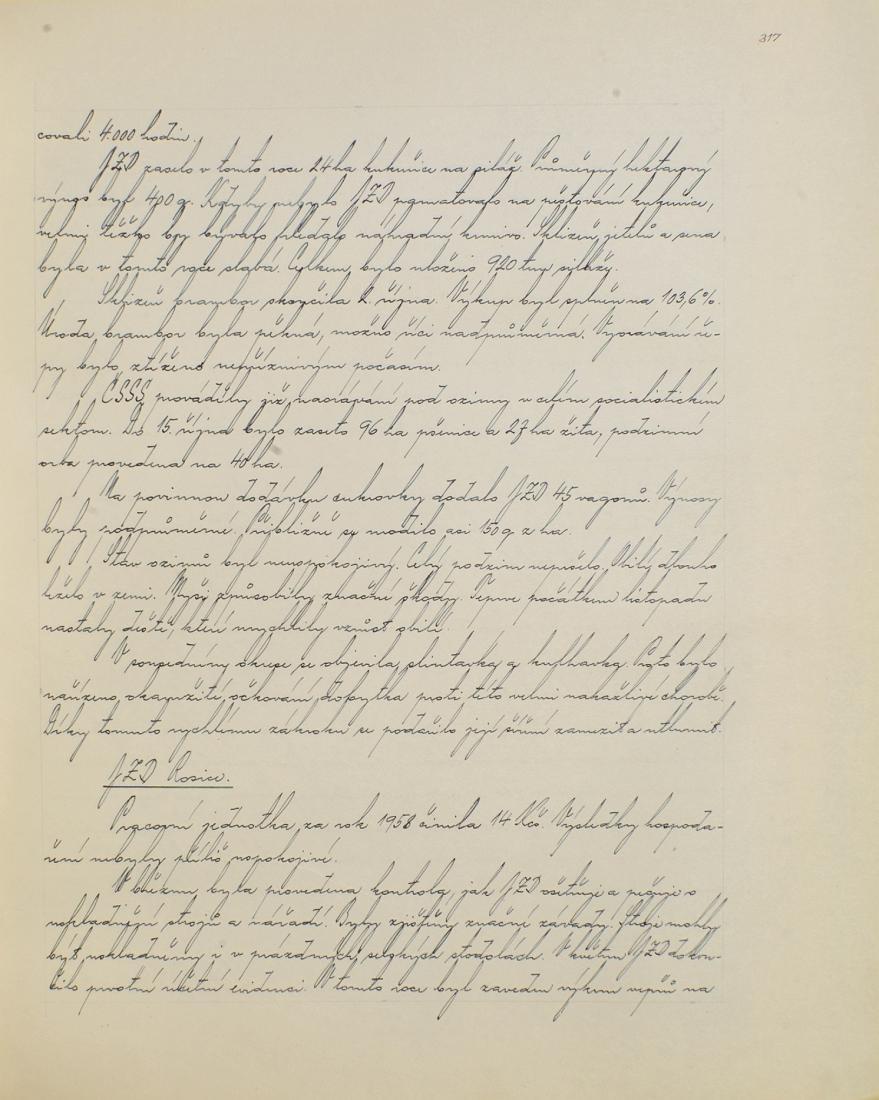 317
covali 4.000 hodin.
JZD zaselo v tomto roce 24 ha kukuřice na siláž. Průměrný hektarový
výnos byl 400 q. Kdyby nebylo JZD pamatovalo na pěstování kukuřice,
velmi těžko by bývalo hledalo náhradní krmivo. Sklizeň jetelů a sena
byla v tomto roce slabá. Celkem bylo uloženo 920 tun siláže.
Sklizeň brambor skončila 2. října. Výkup byl splněn na 103,6%.
Úroda brambor byla pěkná, možno říci nadprůměrná. Vyorávání ře-
py bylo ztíženo nepříznivým počasím.
ČSSS prováděly již naorávání pod ozimy v celém socialistickém
sektoru. Do 15. října bylo zaseto 96 ha pšenice a 27 ha žita, podzimní
orba provedena na 40 ha.
Na povinnou dodávku cukrovky dodalo JZD 45 vagonů. Výnosy
byly podprůměrné. Přibližně se urodilo asi 150 q z ha.
Stav ozimů byl neuspokojivý. Celý podzim nepršelo. Obilí dlouho
leželo v zemi. Myši způsobily značné škody. Teprve počátkem listopadu
nastaly deště, které urychlily vzrůst obilí.
V sousedním okrese se objevila slintavka a kulhavka. Proto bylo
nařízeno okamžité očkování dobytka proti této velmi nakažlivé chorobě.
Díky tomuto rychlému zákroku se podařilo její šíření zamezit a utlumit.
JZD Rosice.
Pracovní jednotka za rok 1958 činila 14 Kčs. Výsledky hospoda-
ření nebyly příliš uspokojivé.
V březnu byla provedena kontrola, jak JZD ošetřuje a pečuje o
uskladnění strojů a nářadí. Byly zjištěny značné závady. Stroje mohly
být uskladněny i v prázdných selských stodolách. V květnu JZD dokon-
čilo prvotní účetní evidenci. V tomto roce byl zaveden výkrm vepřů na